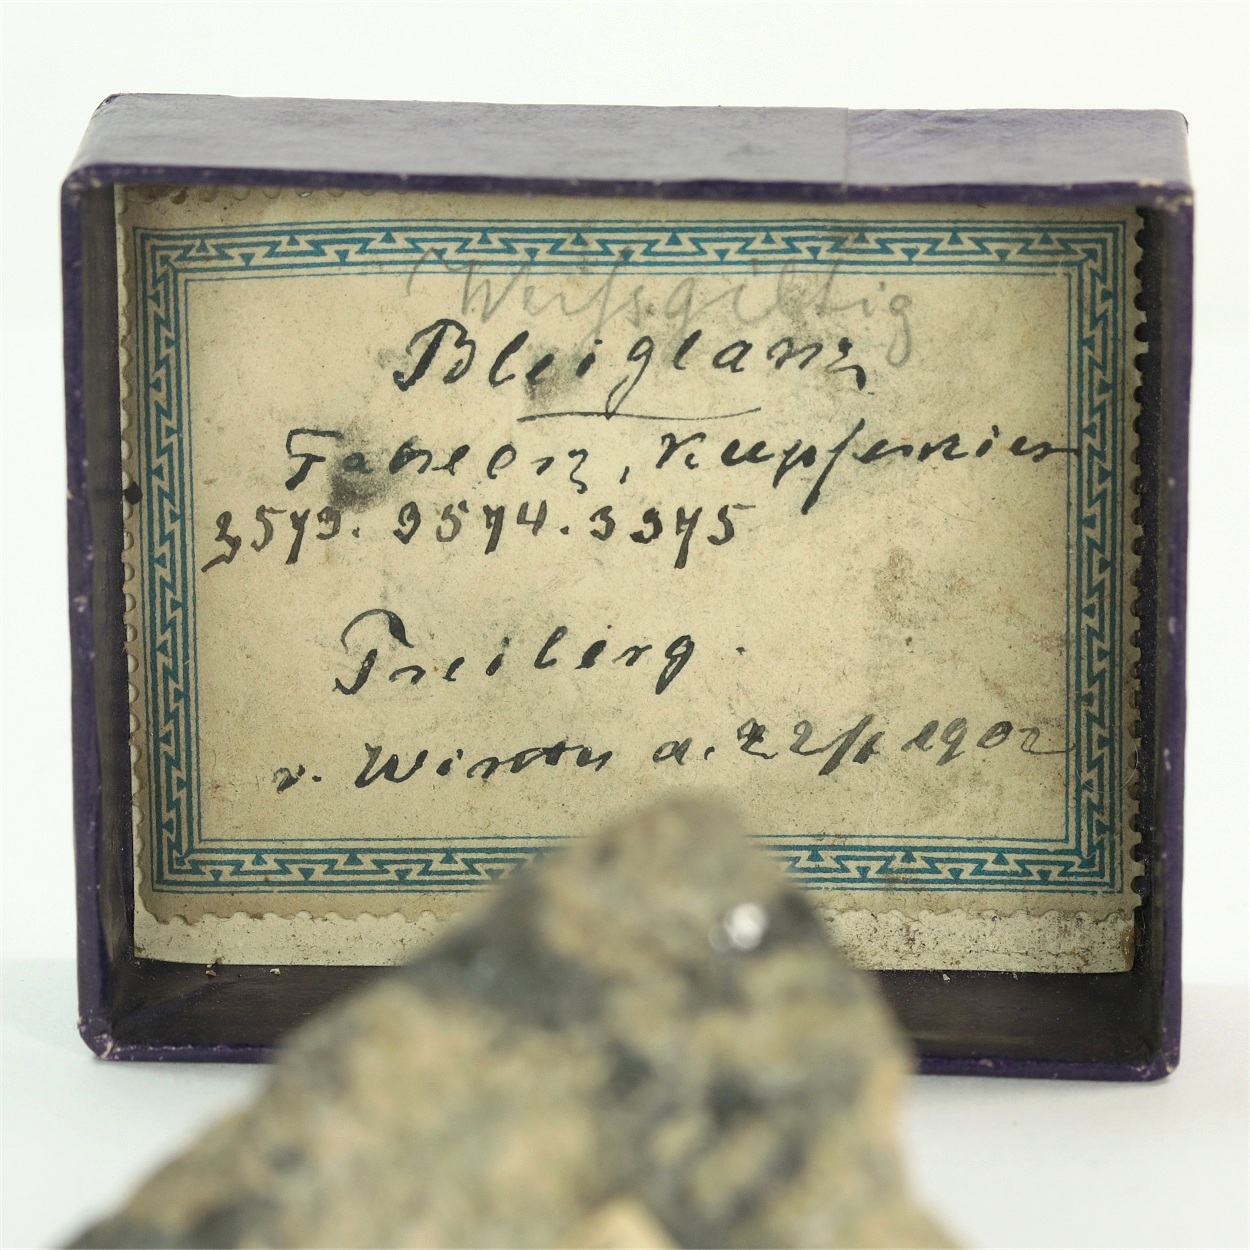 Weissgiltig
Bleiglanz
Fahlerz, Kupferkies
3573. 3574. 3375
Freiberg.
v. d. 22/ 1902